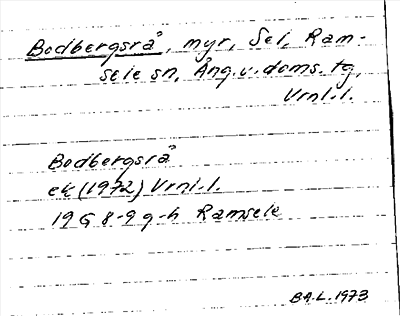 Bodbergsrå, myr, Sel, Ram-
sele sn, Ång.v. doms. tg,
Vrnl. l.
Bodbergsrå
ek (1972) Vrnl. l.
19 G 8-9 g-h Ramsele
B.A.L. 1973